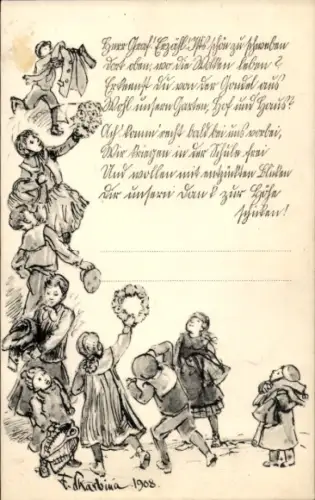 Herr Graf! Erzähl! Ist's schön zu schweben
Dort oben, wo die Wolken leben?
Erkennst du von der Gondel aus
Wohl unsern Garten, Hof und Haus?
Ach! komm' erst bald bei uns vorbei,
Wir kriegen in der Schule frei
Und wollen mit entzückten Blicken
Dir unsern Dank zur Höhe
schicken!
F. Skarbina 1908.